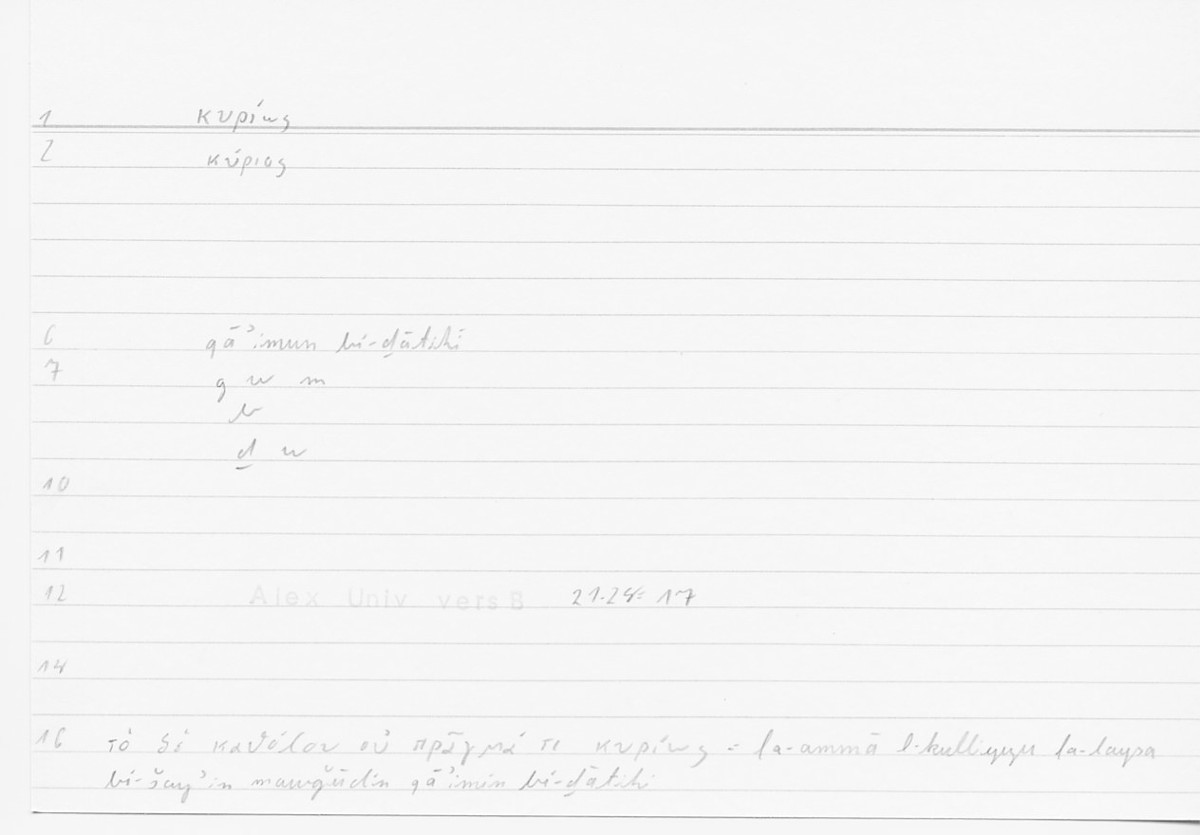 1 κυρίως
2 κύριος
6 qāʾimun bi-ḏātihi
7 q w m
b
ḏ w
10
11
12 Alex Univ vers B 21.28 = 17
14
16 τὸ δὲ καθόλου οὐ πρᾶγμά τι κυρίως = fa-ammā l-kulliyyu fa-laysa
bi-šayʾin mawǧūdin qāʾimin bi-ḏātihi